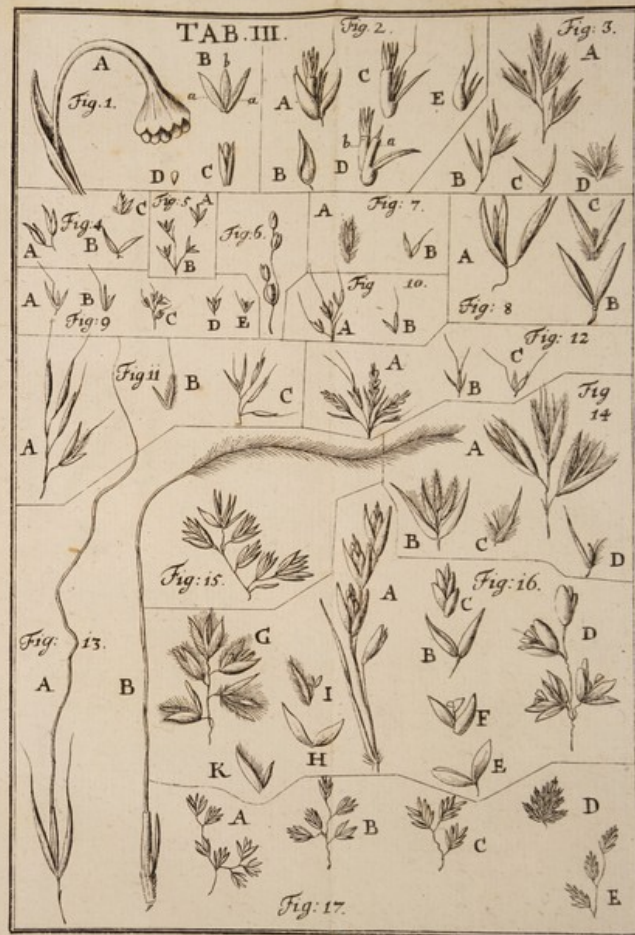 TAB. III.
Fig. 1.
A
B
b
a a
D
C
Fig. 2.
A
C
E
B
b a
D
Fig: 3.
A
B
C
D
Fig. 4
A
B
C
Fig. 5
A
B
Fig. 6.
Fig: 7.
A
B
Fig: 8
A
C
B
Fig: 9
A
B
C
D
E
Fig 10.
A
B
Fig 11
A
B
C
Fig: 12
A
B
C
Fig: 13.
A
B
Fig 14
A
B
C
D
Fig: 15.
Fig: 16.
A
C
B
D
F
E
G
I
H
K
Fig: 17.
A
B
C
D
E